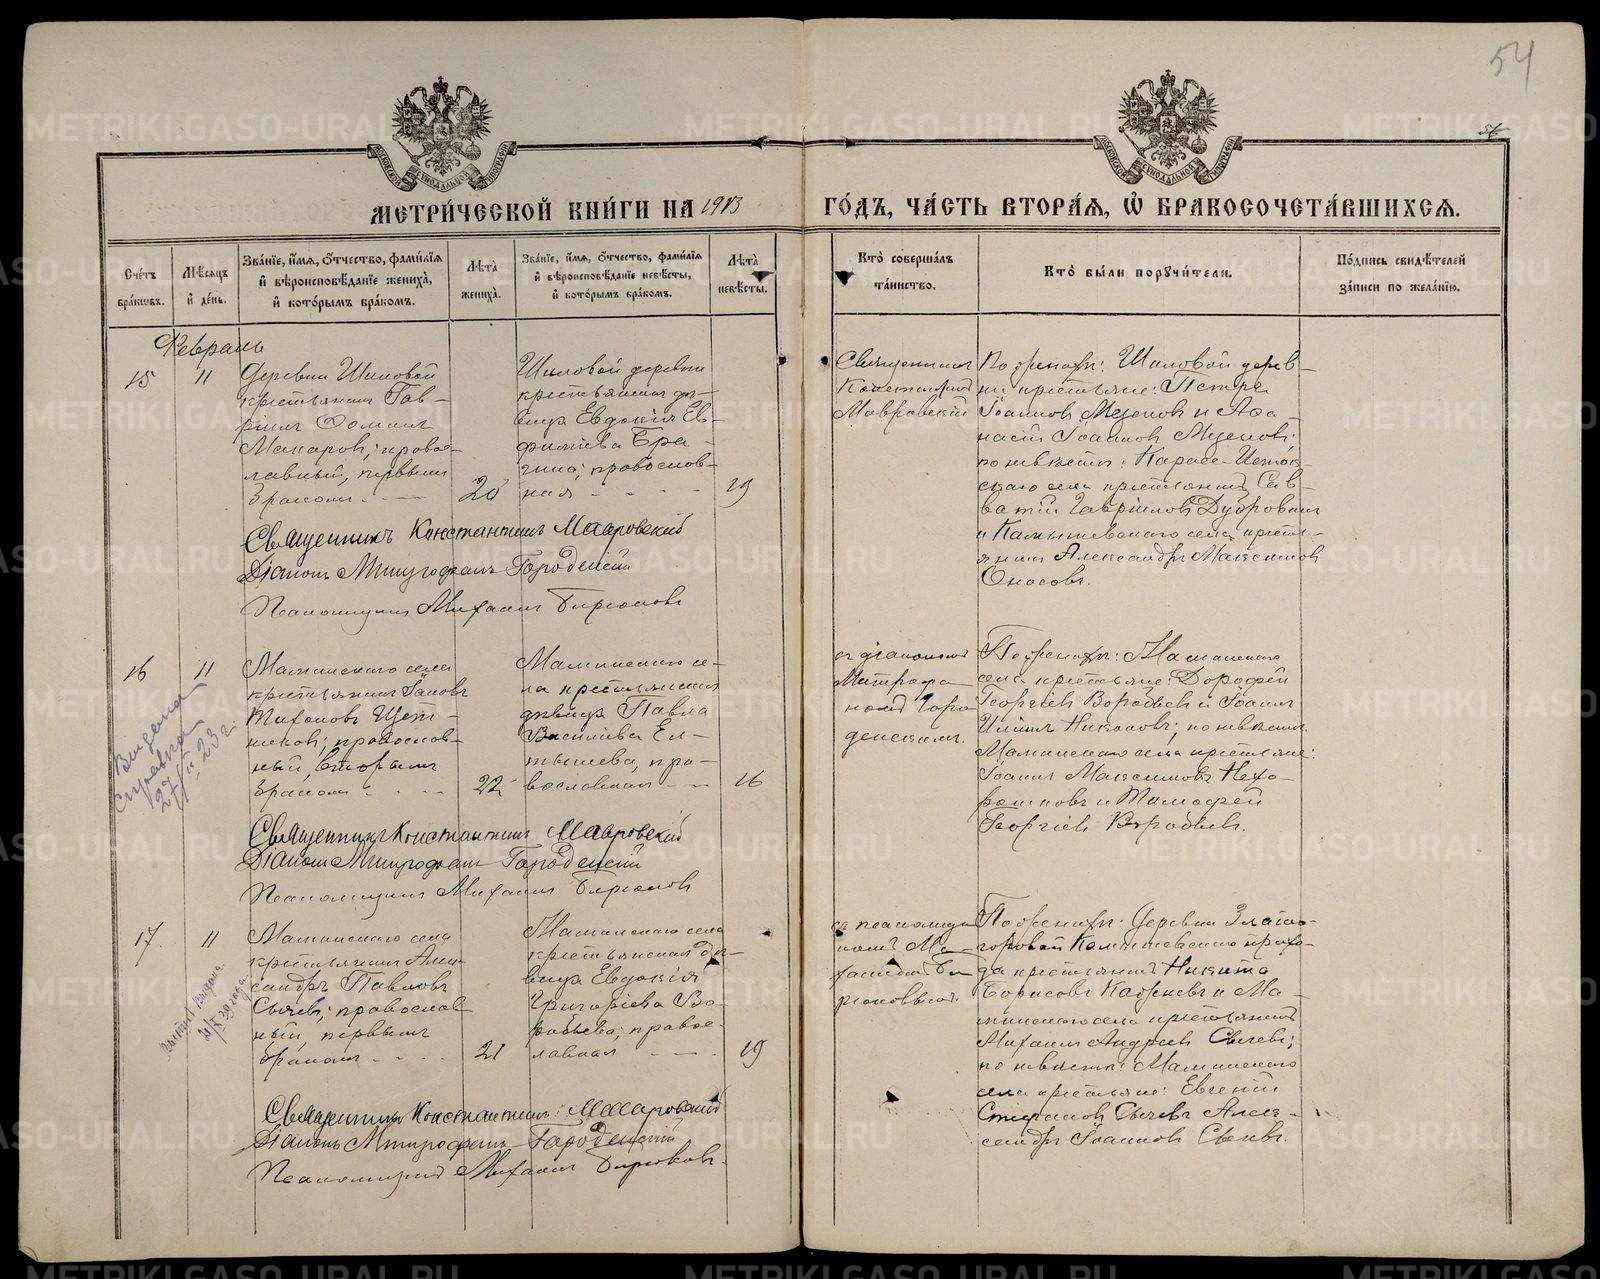 54
54
МЕТРИ́ЧЕСКОЙ КНИ́ГИ НА 1913
ГО́ДЪ, ЧА́СТЬ ВТОРА́Я, Ѡ҆ БРАКОСОЧЕТА́ВШИХСЯ.
Сче́тъ бра́ковъ.
Мѣ́сяцъ и҆ де́нь.
Зва́нїе, и҆́мя, ѻ҆́тчество, фами́лїя
и҆ вѣроисповѣ́данїе жениха̀,
и҆ кото́рымъ бра́комъ.
Лѣ́та жениха̀.
Зва́нїе, и҆́мя, ѻ҆́тчество, фами́лїя
и҆ вѣроисповѣ́данїе невѣ́сты,
и҆ кото́рымъ бра́комъ.
Лѣ́та невѣ́сты.
Кто̀ соверша́лъ
та́инство.
Кто̀ бы́ли поручи́тели.
По́дпись свидѣ́телей
за́писи по жела́нїю.
Февраль
15
11
Деревни Шиловой
крестьянинъ Гав-
рiилъ
Макаровъ; право-
лавный, первымъ
бракомъ
20
Шиловой деревни
крестьянская дѣ-
вица Евдокiя Ев-
фимiева Бра-
гина; православ-
ная
19
Священникъ
Константинъ
Мавровский
По женихѣ: Шиловой дерев-
ни крестьяне: Петръ
Iоанновъ и Аѳа-
насiй Iоанновъ
по невѣстѣ: Карасе-Исток-
скаго села крестьянинъ Сав-
ватiй Гаврiиловъ Дубровинъ
и Камышевскаго села кресть-
янинъ Александръ Максимовъ
Священникъ Константинъ Мавровский
Дiаконъ Митрофанъ Городенскiй
Псаломщикъ Михаилъ Бирюковъ
16
11
Маминскаго села
крестьянинъ Iаковъ
Тихоновъ Щет-
никовъ; православ-
ный, вторымъ
бракомъ
22
Маминскаго се-
ла крестьянская
дѣвица Павла
Васильева Ел-
тышева, пра-
вославная
16
съ дiакономъ
Митрофа-
номъ Горо-
денскимъ.
По женихѣ: Маминскаго
села крестьяне: Дорофей
Георгiевъ Воробьевъ и Iоаннъ
по невѣстѣ
Маминскаго села крестьяне:
Iоаннъ Максимовъ Нехо-
рошковъ и Тимофей
Георгiевъ Воробьевъ.
Выдана
справка
27/II 23 г.
Священникъ Константинъ Мавровскiй
Дiаконъ Митрофанъ Городенскiй
Псаломщикъ Михаилъ Бирюковъ
17.
11
Маминскаго села
крестьянинъ Алек-
сандръ Павловъ
Сычевъ; православ-
ный, первымъ
бракомъ
21
Маминскаго села
крестьянская дѣ-
вица Евдокiя
Григорiева Во-
робьева; право-
лавная
19
съ псаломщи-
комъ Ми-
хаиломъ Би-
рюковымъ.
По женихѣ: Деревни Злато-
горовой Камышевскаго прихо-
да крестьянинъ Никита
Борисовъ и Ма-
минскаго села крестьянинъ
Михаилъ Андреевъ Сычевъ;
по невѣстѣ: Маминскаго
села крестьяне: Евгенiй
Стефановъ Сычевъ Алек-
сандръ Iоанновъ Сычевъ.
выдана
21/X 39 года
Священникъ Константинъ Мавровскiй
Дiаконъ Митрофанъ Городенскiй
Псаломщикъ Михаилъ Бирюковъ.